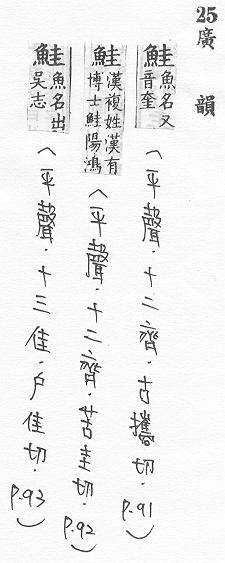 25
廣韻
鮭魚名又音奎（平聲．十二齊．古攜切．P.91）
鮭漢複姓漢有博士鮭陽鴻（平聲．十二齊．苦圭切．P.92）
鮭魚名出吳志（平聲．十三佳．戶佳切．P.93）